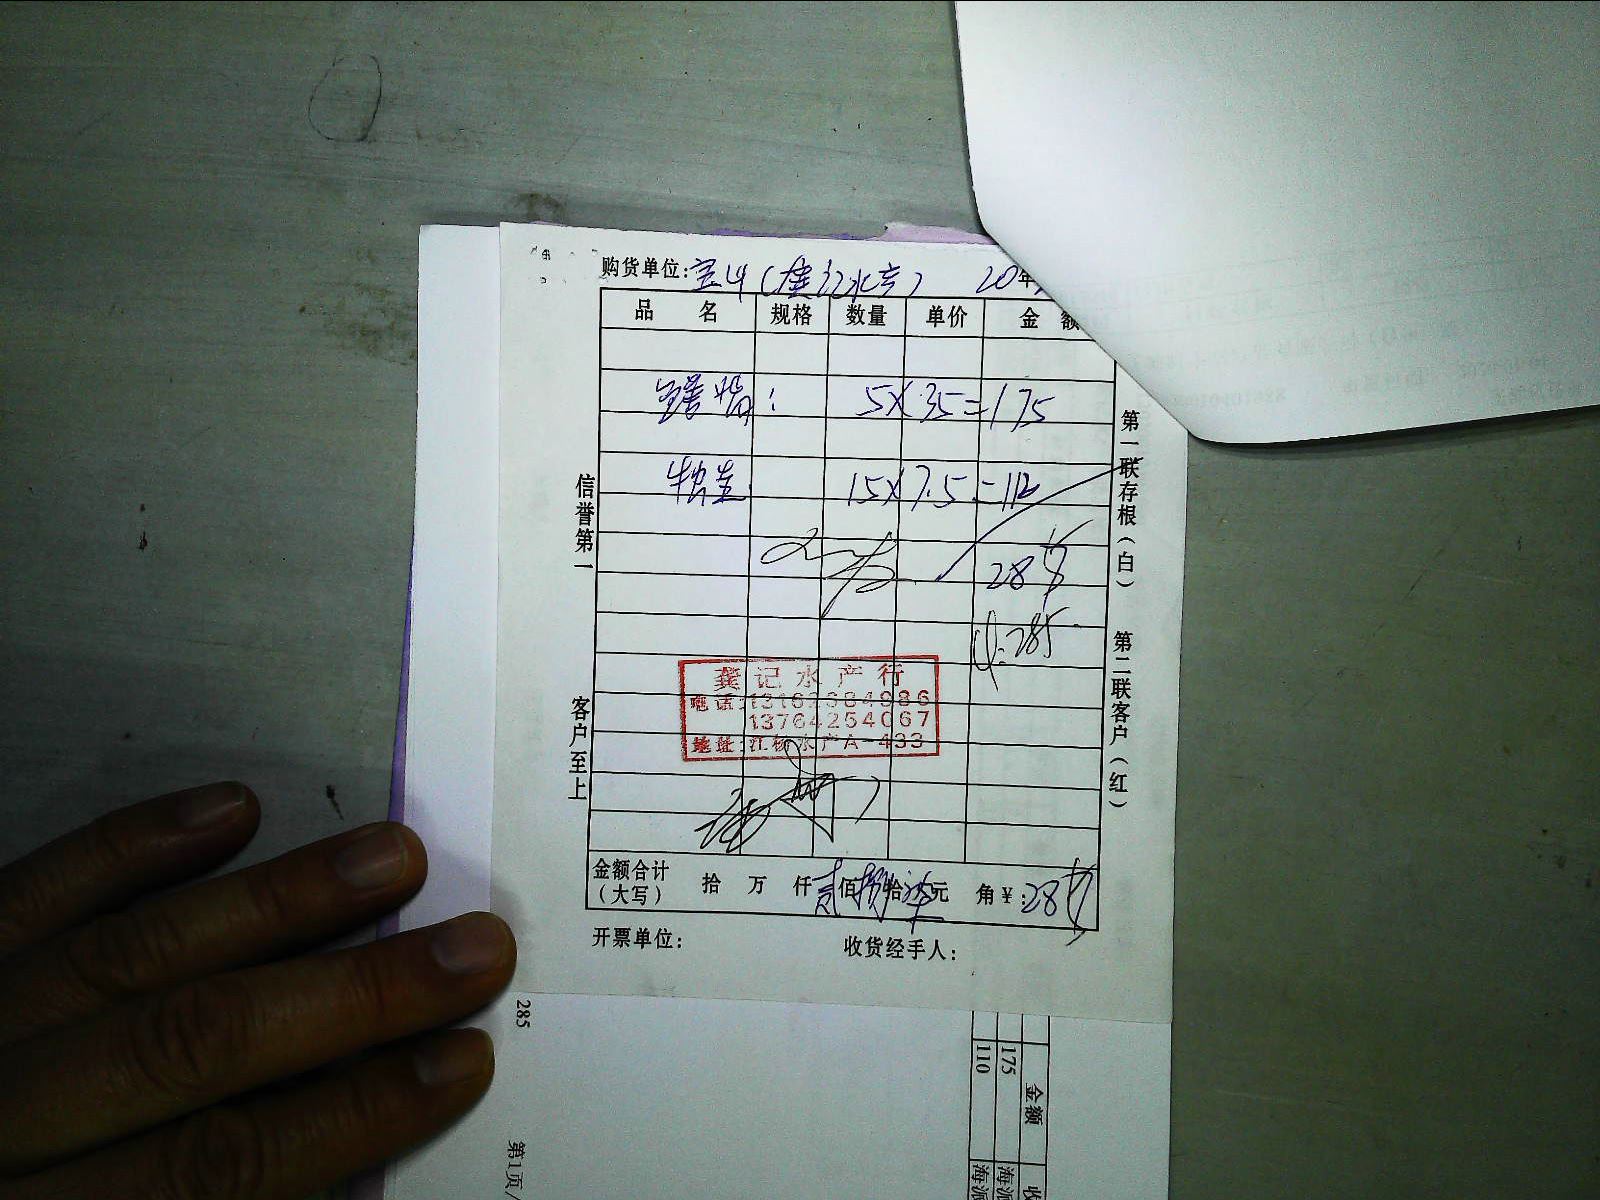 购货单位: 20年
品 名 规格 数量 单价 金 额
5X 35=175
15X 7.5=112
287
285
龚记水产行
电话:13162684986
13764254067
地址:江杨水产A-433
金额合计
(大写) 拾 万 仟贰佰捌拾柒元 角¥:287
开票单位: 收货经手人:
信誉第一 客户至上
第一联存根(白) 第二联客户(红)
285
第1页/
金额 收
175 海派
110 海派